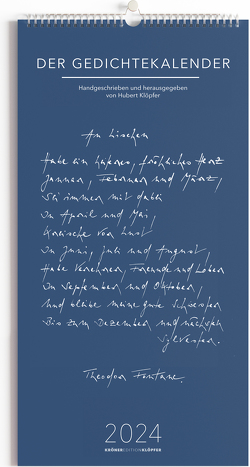 DER GEDICHTEKALENDER
Handgeschrieben und herausgegeben
von Hubert Klöpfer
An Lischen
Habe ein heiteres, fröhliches Herz
Januar, Februar und März,
Sei immer mit dabei
In April und Mai,
Kreische vor Lust
In Juni, Juli und August,
Habe Verehrer, Freunde und Lober
In September und Oktober,
Und bleibe meine gute Schwester
Bis zum Dezember und nächsten
Sylvester.
Theodor Fontane
2024
KRÖNEREDITIONKLÖPFER